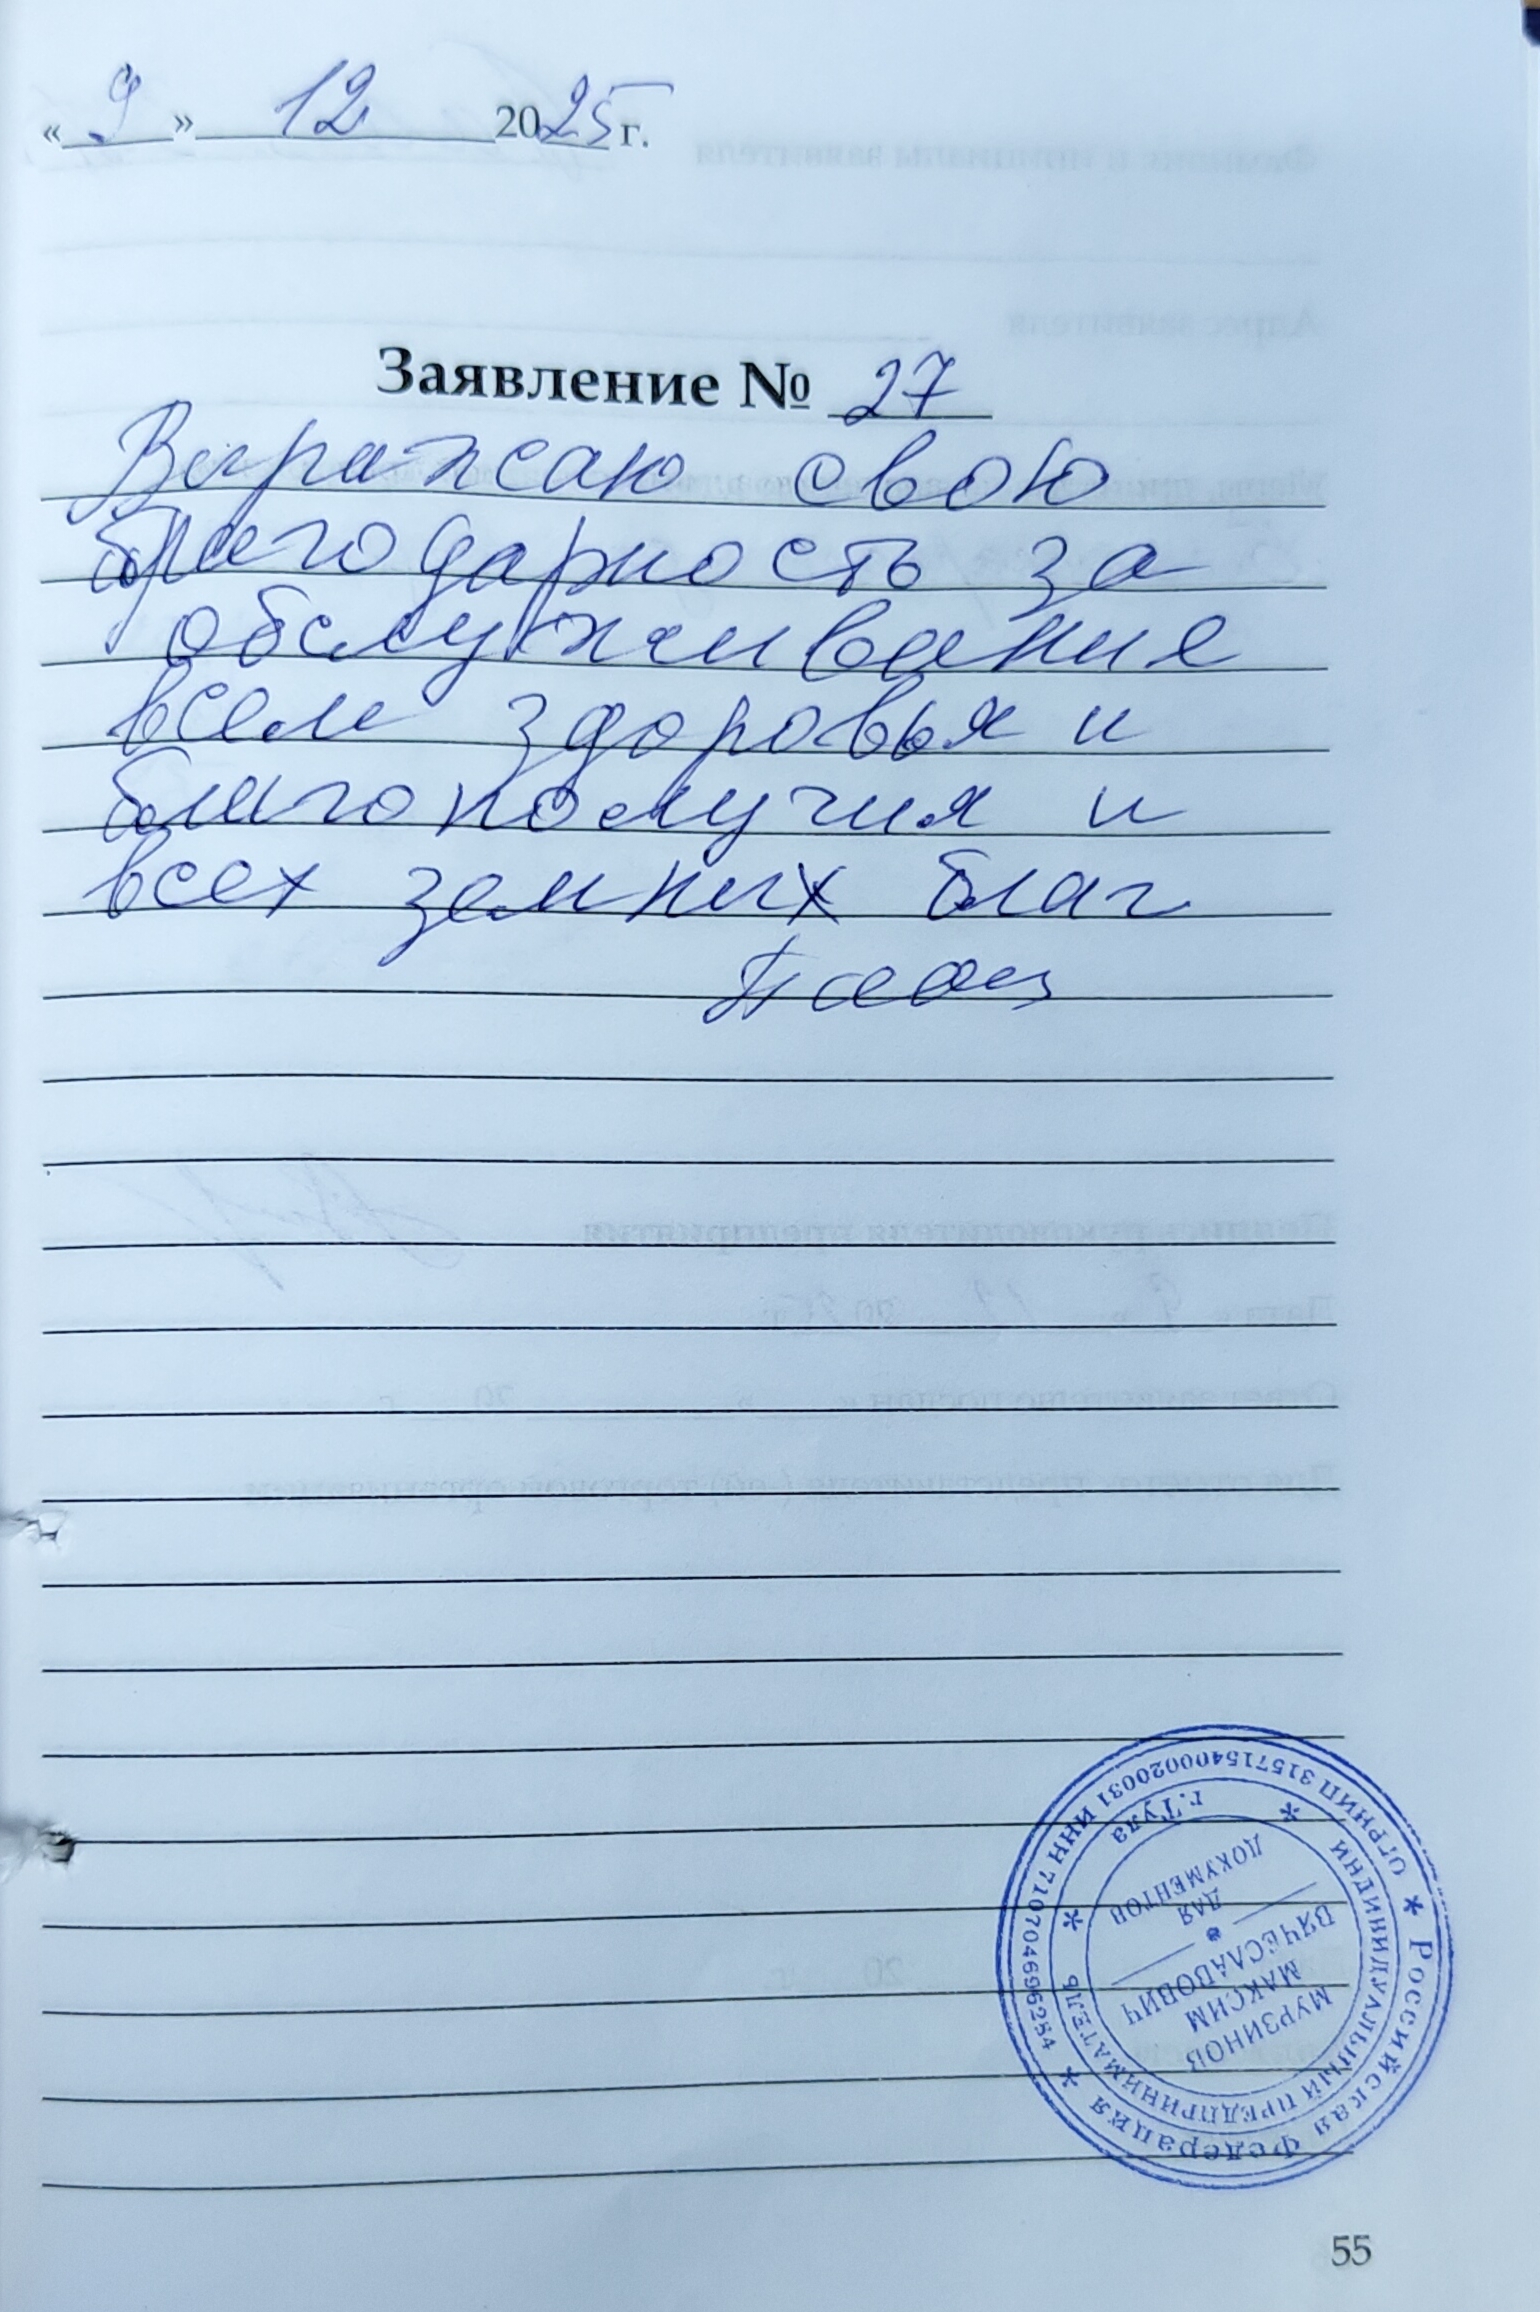 «9» 12 2025 г.
Заявление № 27
Выражаю свою
благодарность за
обслуживание
всем здоровья и
благополучия и
всех земных благ
Российская Федерация * ОГРНИП 315715400020031 ИНН 710704696284 *
ИНДИВИДУАЛЬНЫЙ ПРЕДПРИНИМАТЕЛЬ * г.Тула *
МУРЗИНОВ
МАКСИМ
ВЯЧЕСЛАВОВИЧ
ДЛЯ
ДОКУМЕНТОВ
55